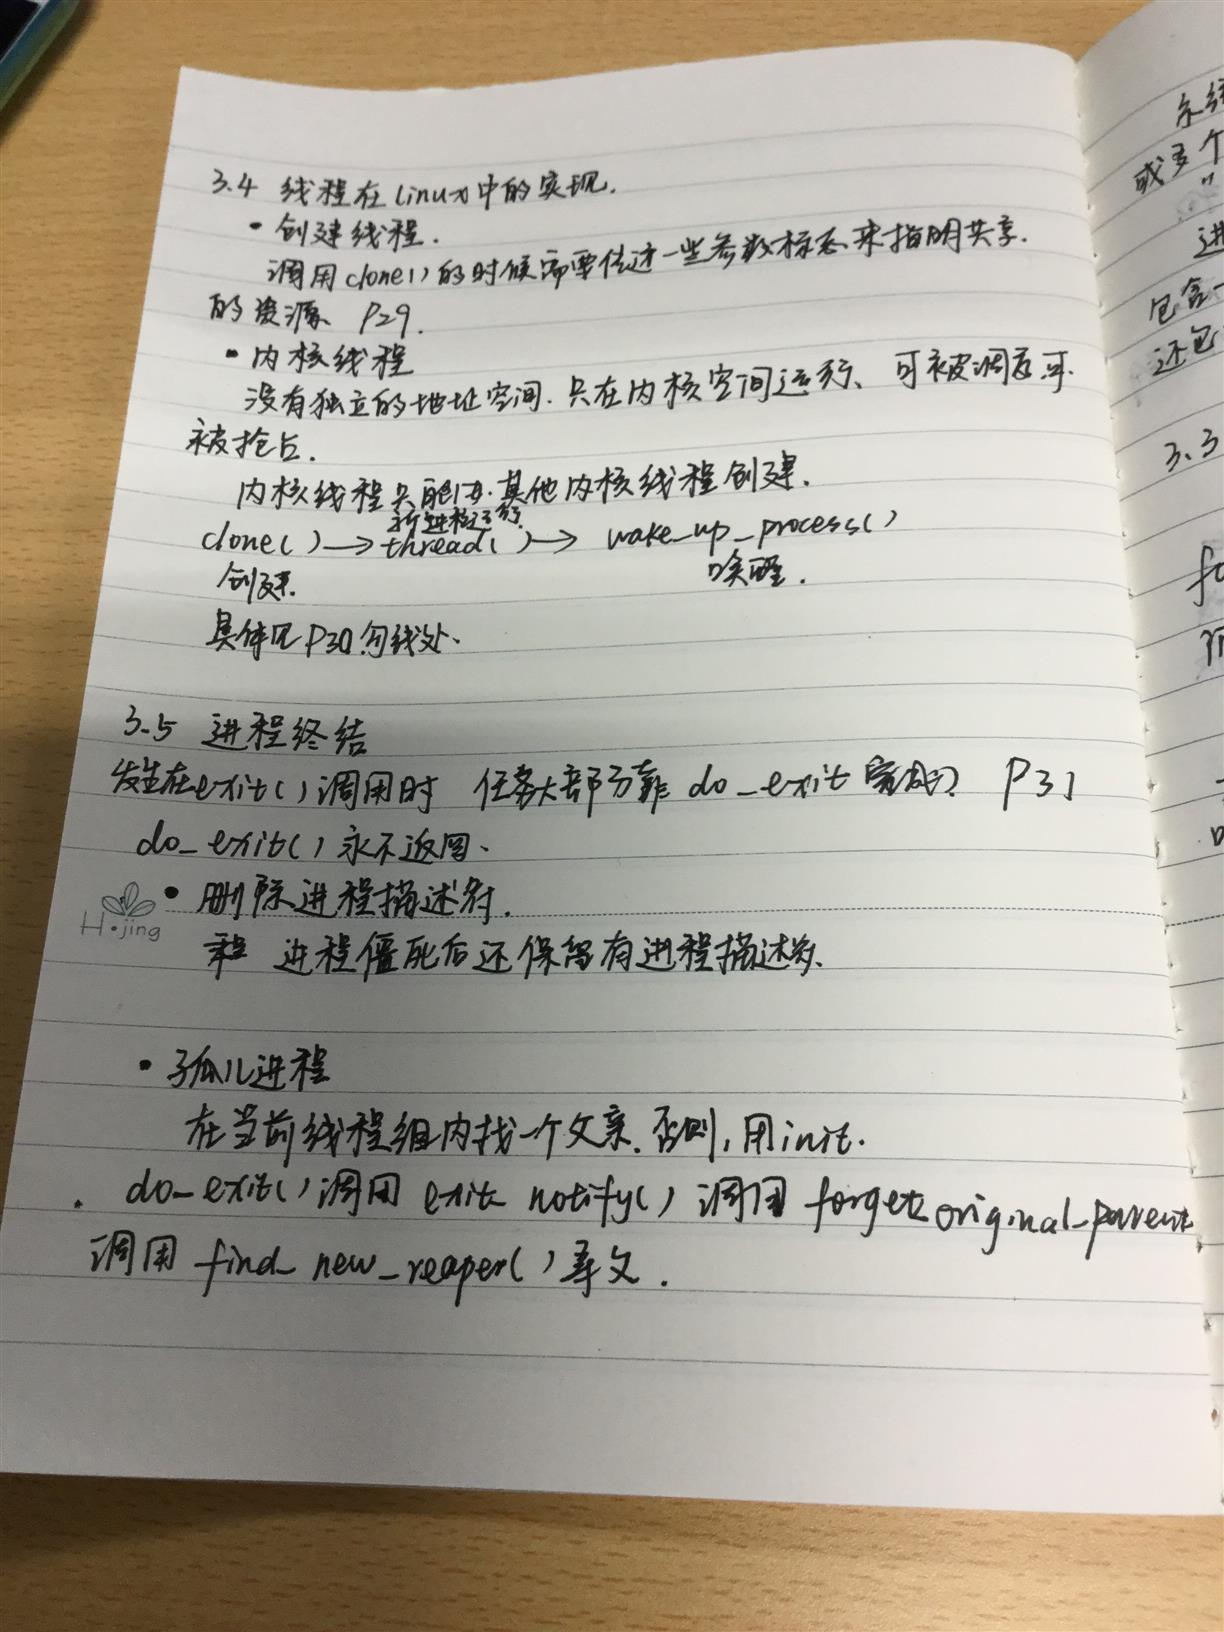 3.4 线程在linux中的实现.
· 创建线程.
调用clone()的时候需要传递一些参数标志来指明共享.
的资源、P29.
· 内核线程
没有独立的地址空间.只在内核空间运行、可被调度可.
被抢占.
内核线程只能由.其他内核线程创建.
新进程运行
clone()→thread()→ wake_up_process()
创建. 唤醒.
具体见P30.勾线处.
3.5 进程终结
发生在exit()调用时 任务大部分靠 do_exit 完成 P31
do_exit()永不返回.
· 删除进程描述符.
H·jing
程 进程僵死后还保留有进程描述符.
· 孤儿进程
在当前线程组内找一个父亲.否则,用init.
. do_exit()调用 exit_notify()调用 forget_original_parent
调用 find_new_reaper()寻父.
系统
或多个
进
包含一
还包
3.3